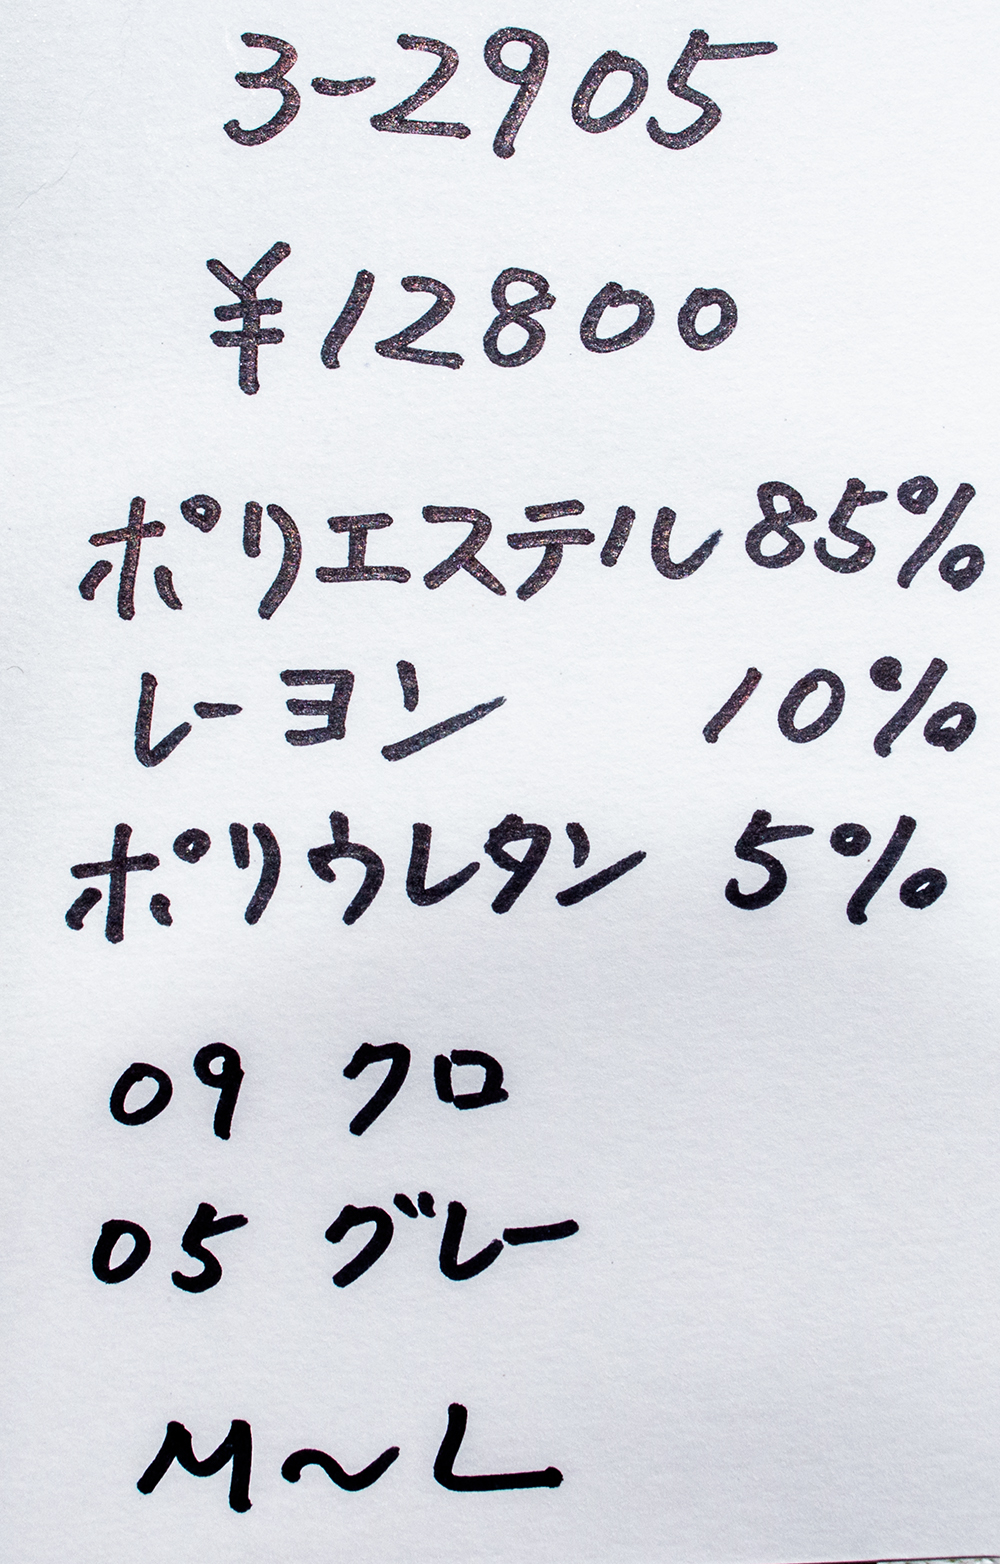 3-2905
¥12800
ポリエステル 85%
レーヨン 10%
ポリウレタン 5%
09 クロ
05 グレー
M～L